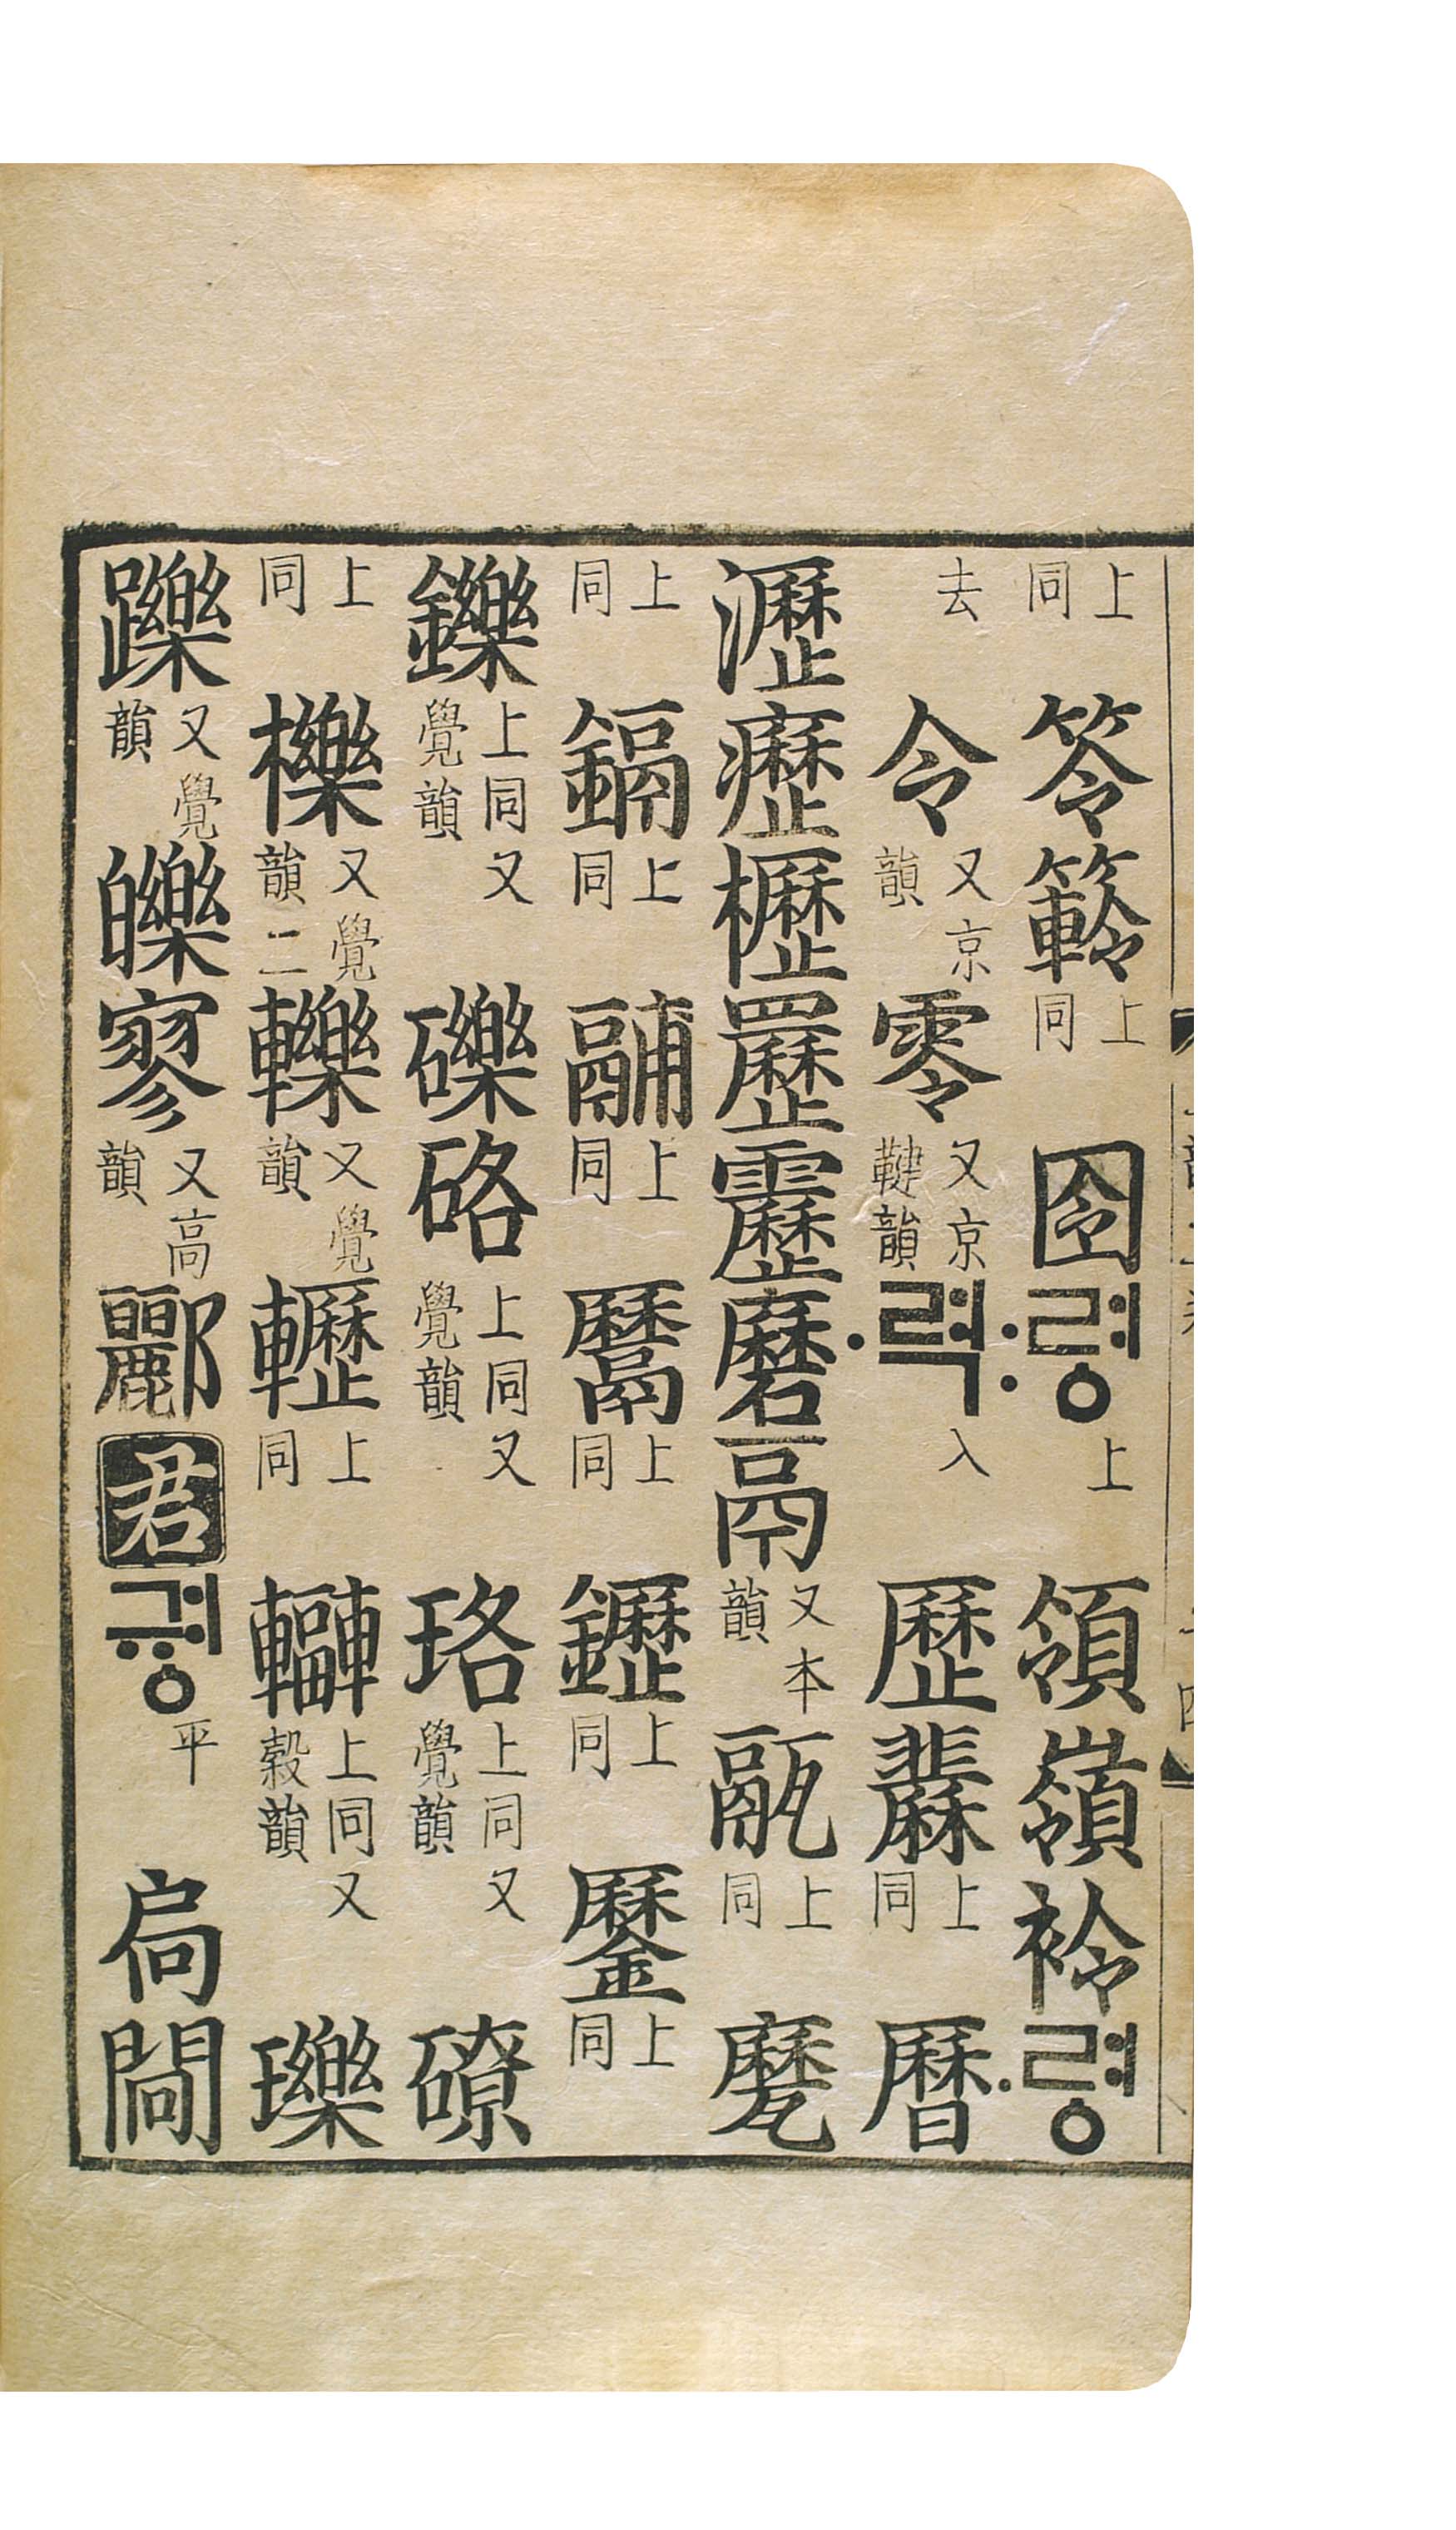 上同笭上同囹:령上領嶺袊·령
去令又京韻零又京鞬韻·력入歷上同曆
瀝癧櫪䍥靂磿鬲又本韻㽁上同
上同鎘上同䰙上同䰜上同䥶上同上同
鑠上同又覺韻礫硌上同又覺韻珞上同又覺韻
上同櫟又覺韻二轢又覺韻轣上同上同又穀韻瓅
躒又覺韻皪寥又高韻酈君ᄀᆑᇰ平扃